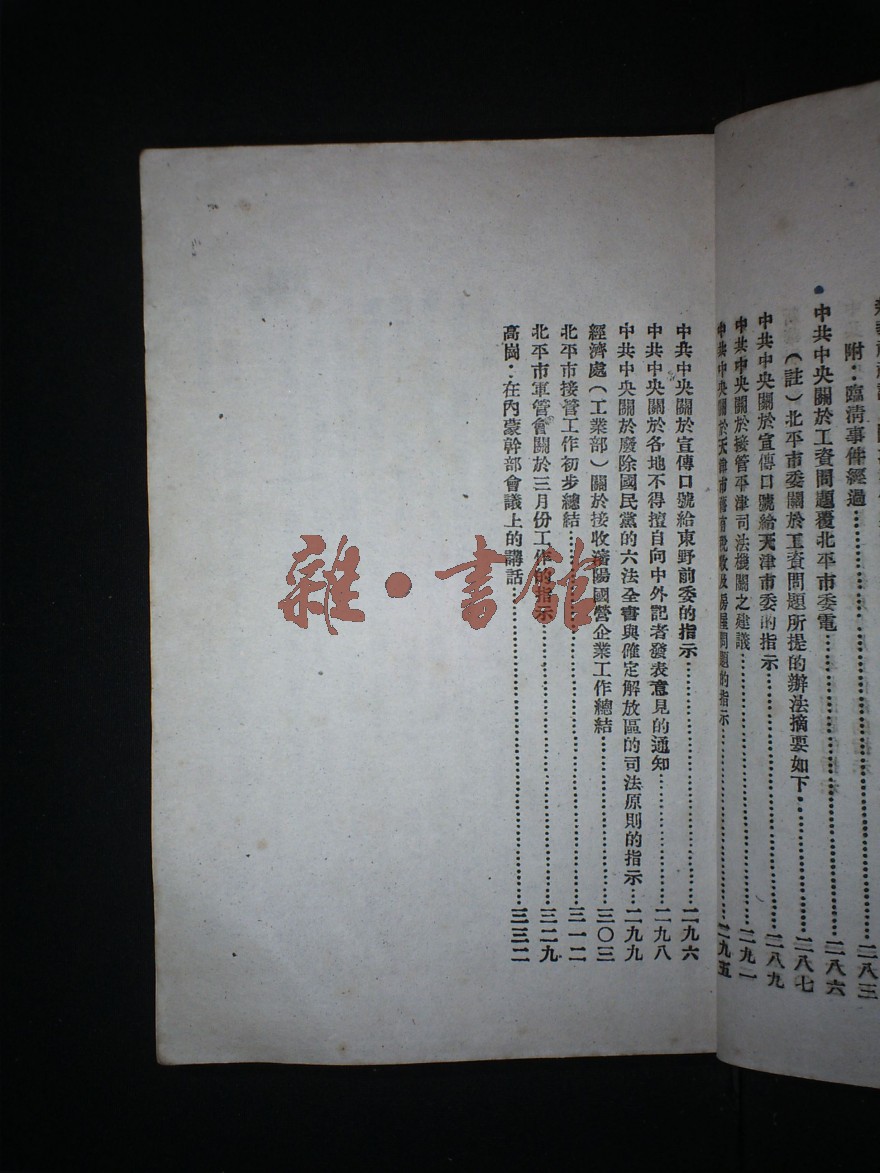 附：臨清事件經過……二八三
中共中央關於工資問題覆北平市委電……二八六
（註）北平市委關於工資問題所提的辦法摘要如下……二八七
中共中央關於宣傳口號給天津市委的指示……二八九
中共中央關於接管平津司法機關之建議……二九一
中共中央關於天津市舊有稅收及房屋問題的指示……二九五
中共中央關於宣傳口號給東野前委的指示……二九六
中共中央關於各地不得擅自向中外記者發表意見的通知……二九八
中共中央關於廢除國民黨的六法全書與確定解放區的司法原則的指示…二九九
經濟處（工業部）關於接收瀋陽國營企業工作總結……三〇三
北平市接管工作初步總結……三一二
北平市軍管會關於三月份工作的指示……三二九
高崗：在內蒙幹部會議上的講話……三三二
雜·書館